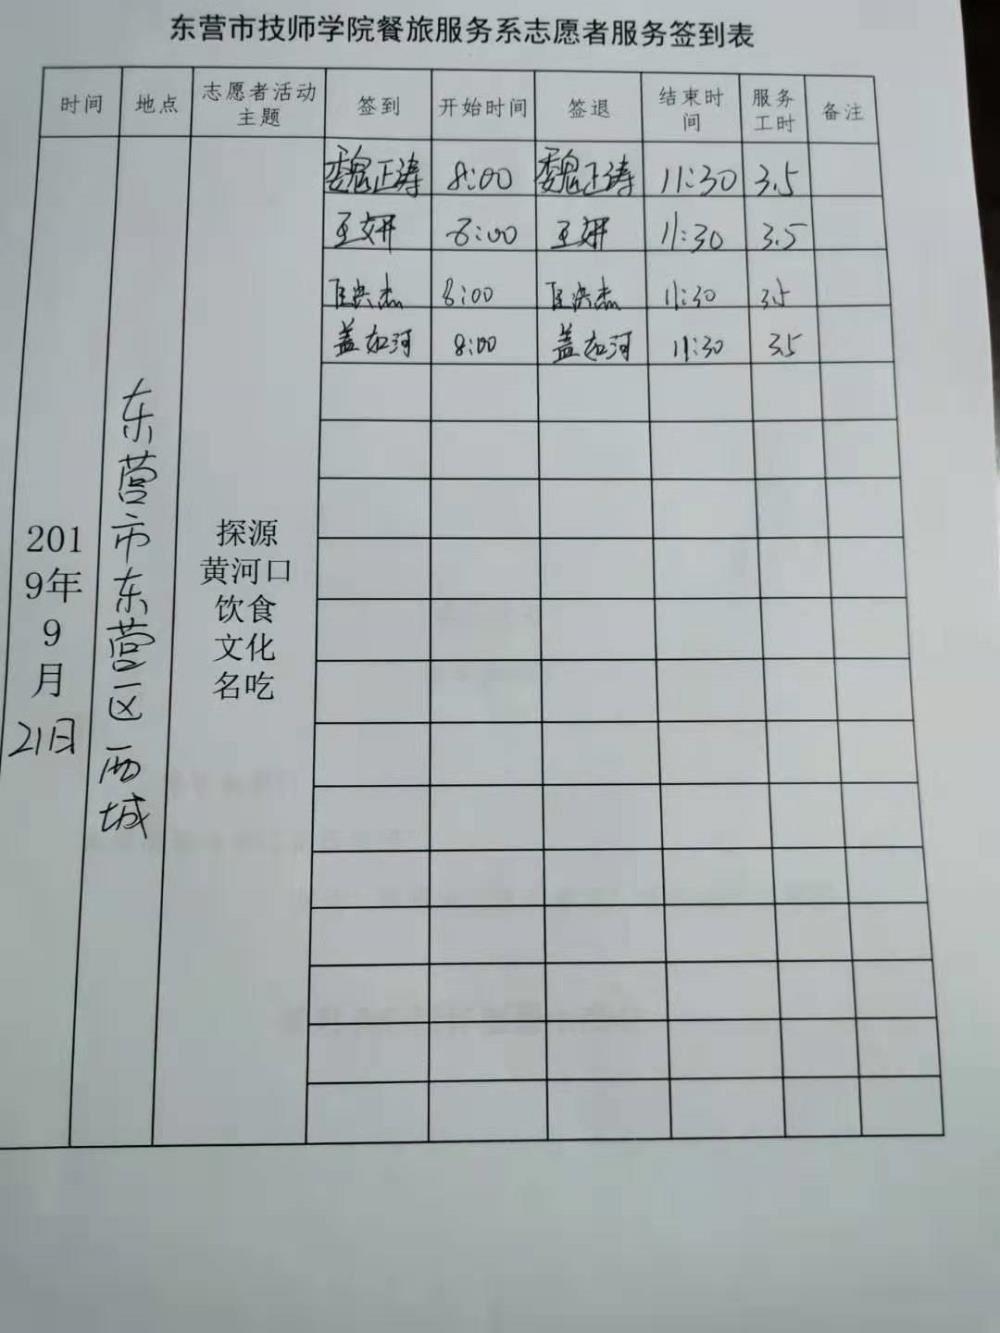 东营市技师学院餐旅服务系志愿者服务签到表
时间 地点 志愿者活动 签到 开始时间 签退 结束时 服务 备注
主题 间 工时
魏正涛 8:00 魏正涛 11:30 3.5
王妍 8:00 王妍 11:30 3.5
洪杰 8:00 洪杰 11:30 3.5
盖如河 8:00 盖如河 11:30 3.5
201
9年
9
月
21日
东营市东营区西城
探源
黄河口
饮食
文化
名吃